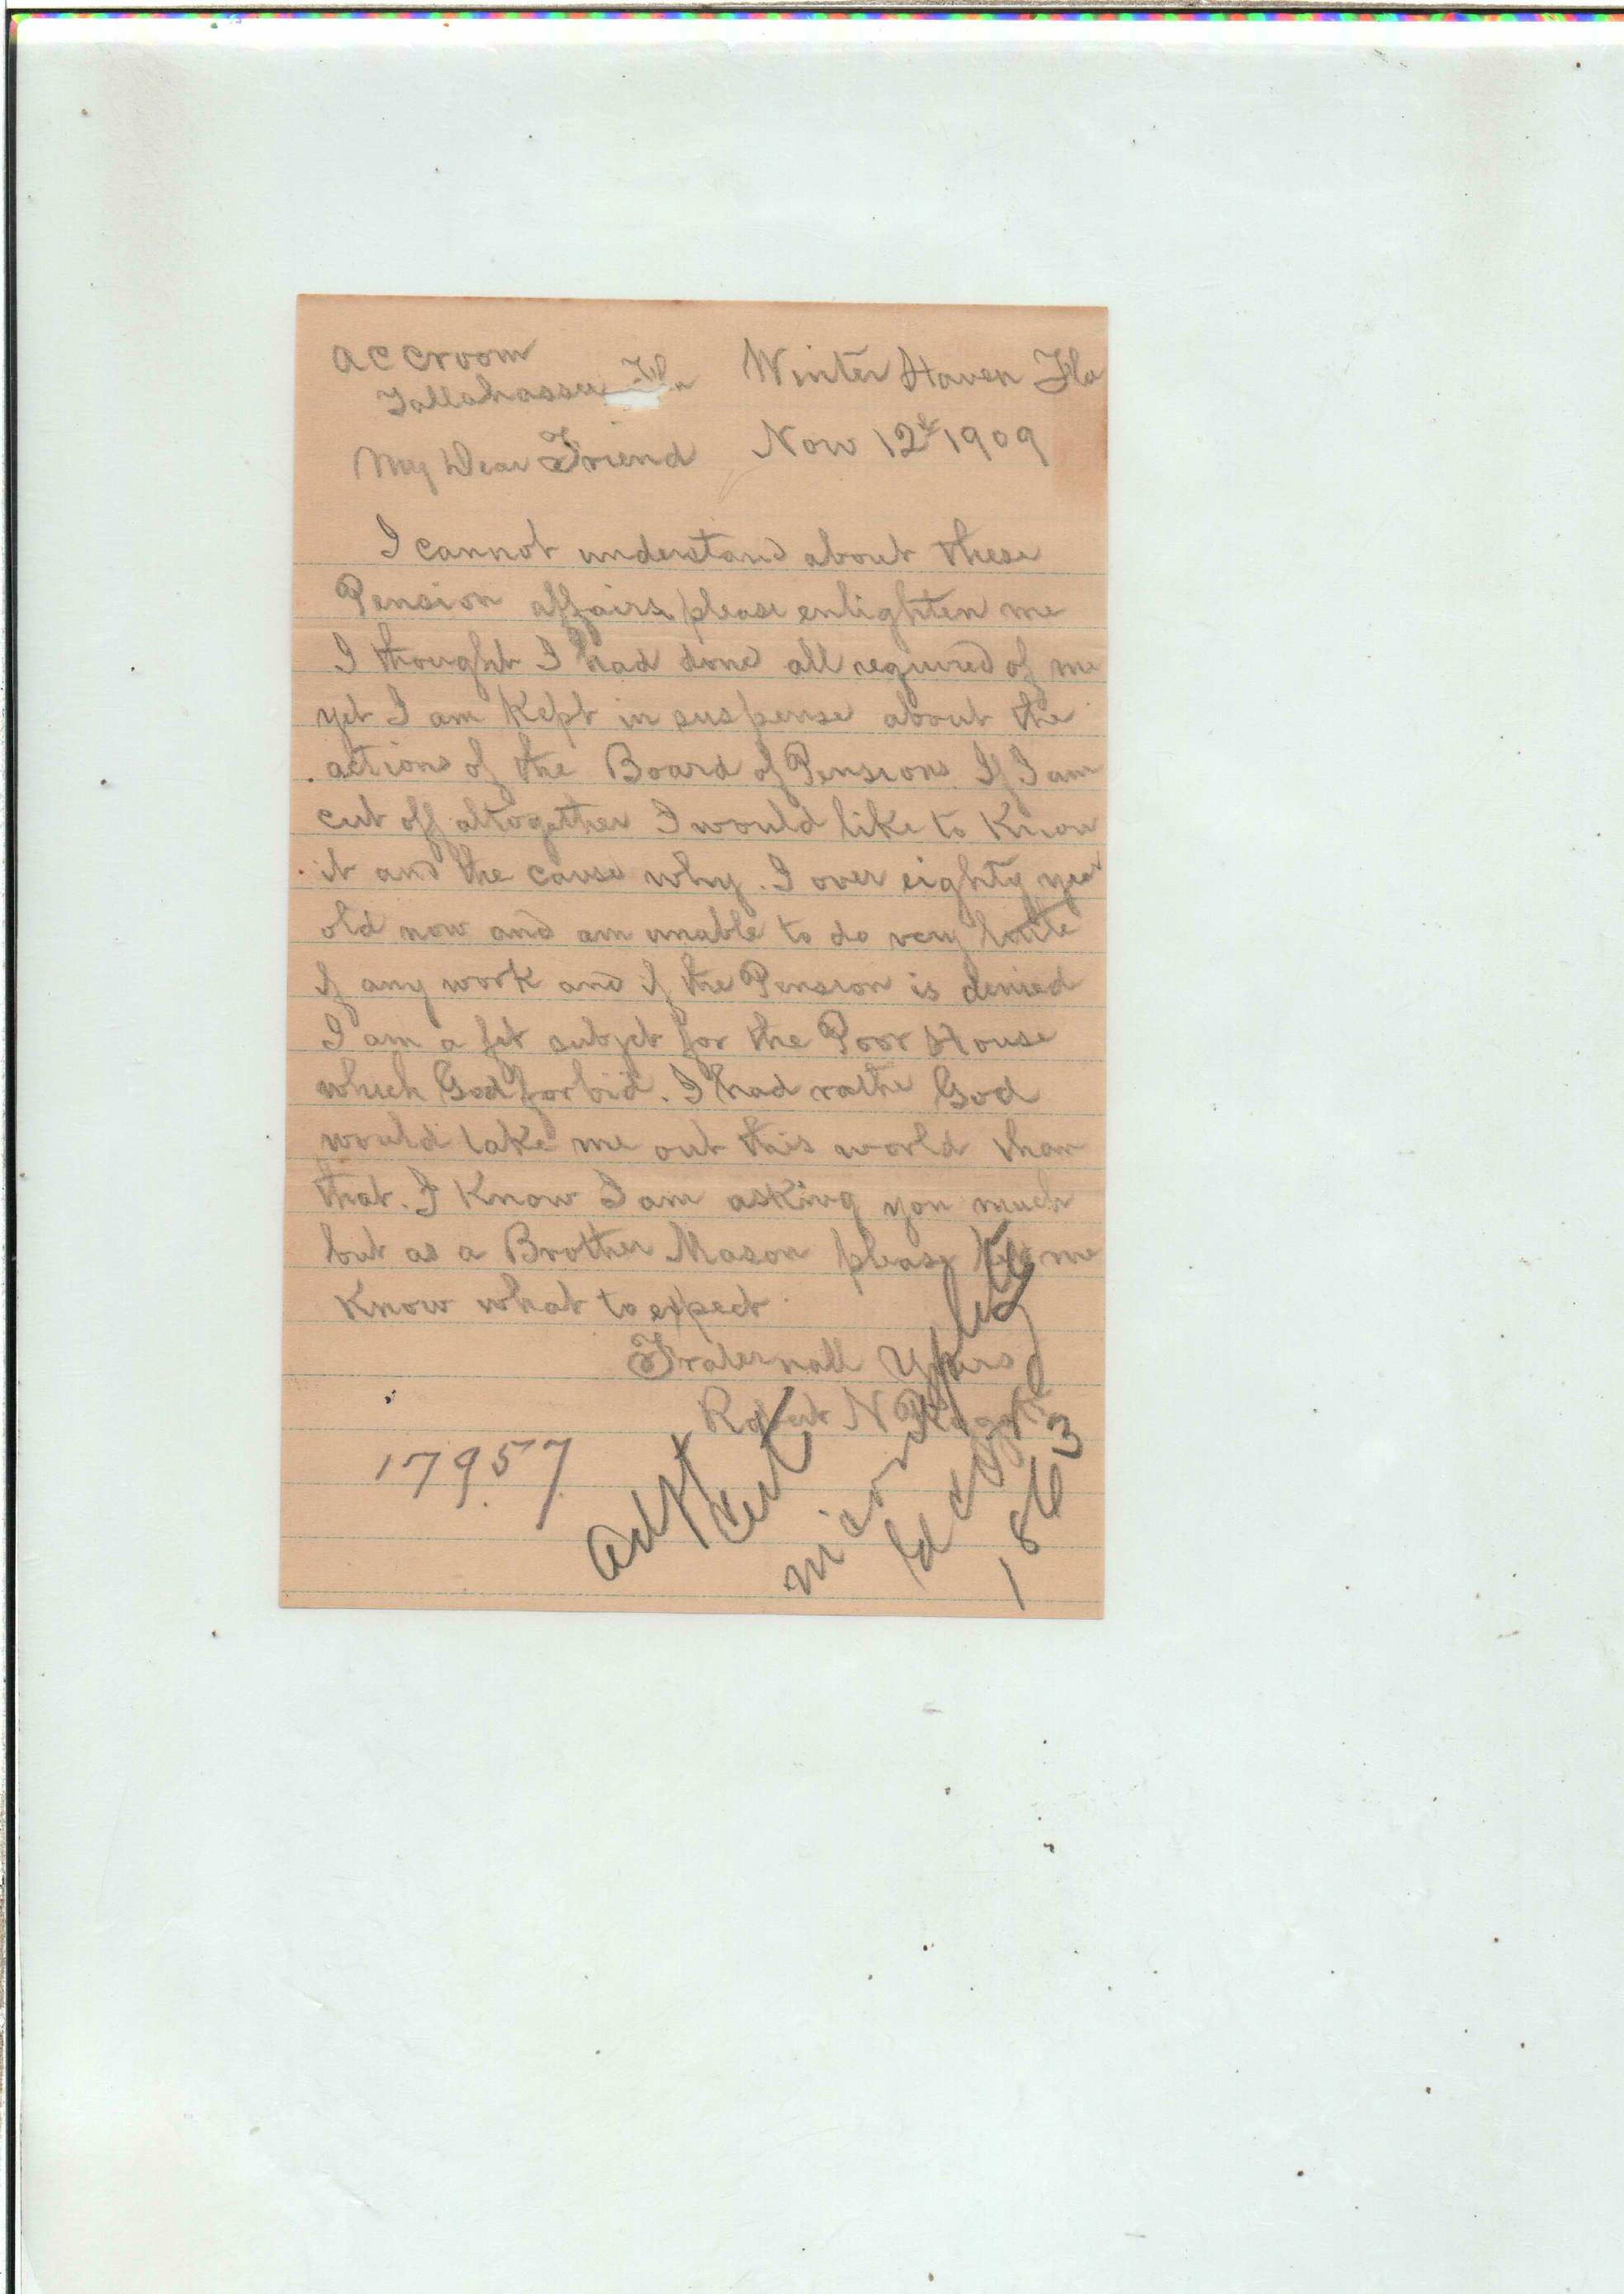 A C Croom
Tallahassee Fla
Winter Haven Fla
Nov 12th 1909
My Dear Friend
I cannot understand about these
Pension affairs please enlighten me
I thought I had done all required of me
yet I am Kept in suspense about the
actions of the Board of Pensions. If I am
cut off altogether I would like to Know
it and the cause why. I over eighty year
old now and am unable to do very little
if any work and if the Pension is denied
I am a fit subjet for the Poor House
which God forbid. I had rathe God
would take me out this world than
that. I Know I am asking you much
but as a Brother Mason please let me
Know what to expect
Fraternall Yours
Robert N
17957
1863